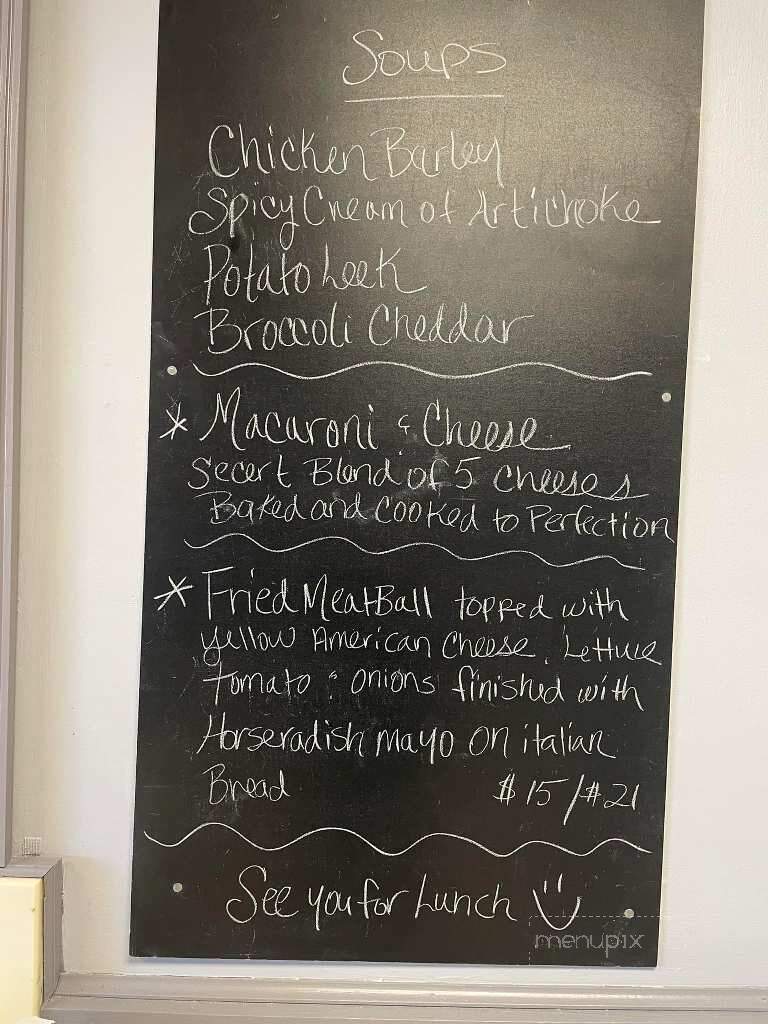 Soups
Chicken Barley
Spicy Cream of Artichoke
Potato Leek
Broccoli Cheddar
* Macaroni & Cheese
Secert Blend of 5 cheeses
Baked and cooked to Perfection
* Fried MeatBall topped with
yellow American Cheese, Lettuce
Tomato & onions finished with
Horseradish mayo on italian
Bread $15/$21
See you for Lunch
menupix